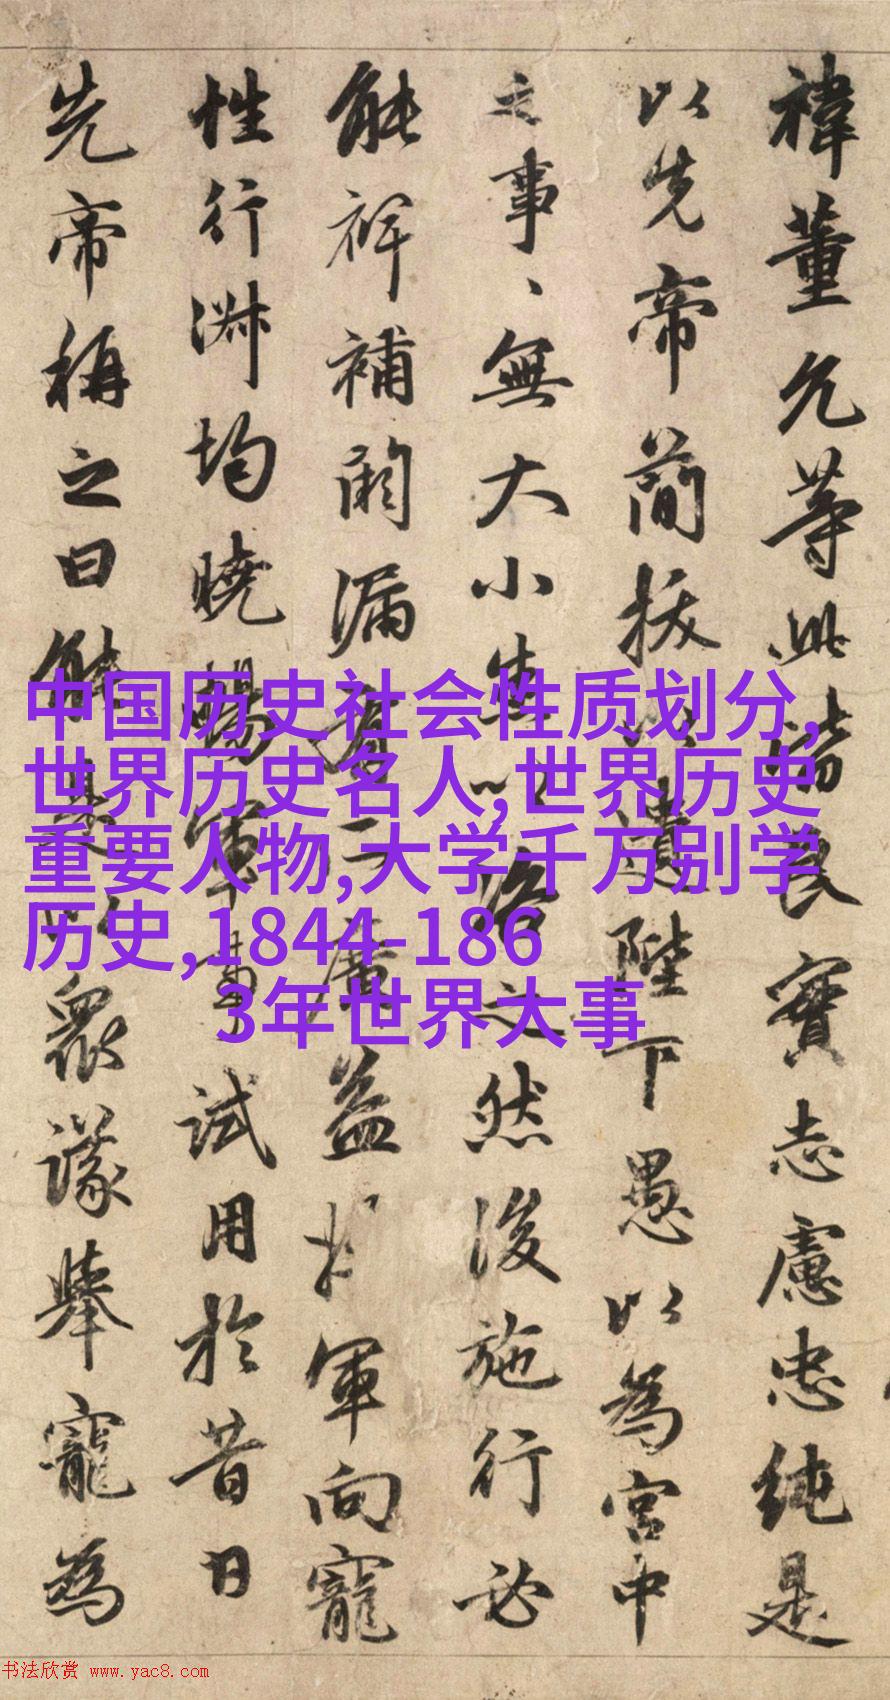 禕董允等此皆良實志慮忠純是
以先帝簡拔以遺陛下愚以為宮中
之事、無大小悉以咨之然後施行必
能裨補闕漏有所廣益將軍向寵
性行淑均曉暢軍事試用於昔日
先帝稱之曰能是以眾議舉寵為
中国历史社会性质划分,
世界历史名人,世界历史
重要人物,大学千万别学
历史,1844-186
3年世界大事
书法欣赏 www.yac8.com